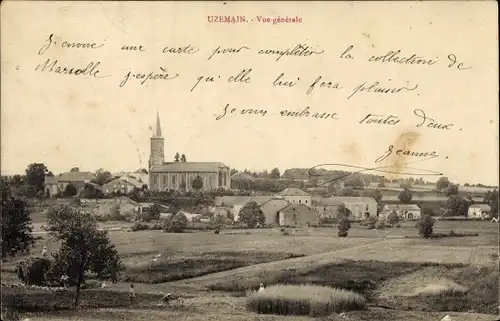 UZEMAIN. - Vue générale
J'envoie une carte pour complèter la collection de
Marcelle. J'espère qu'elle lui fera plaisir.
Je vous embrasse toutes deux.
Jeanne